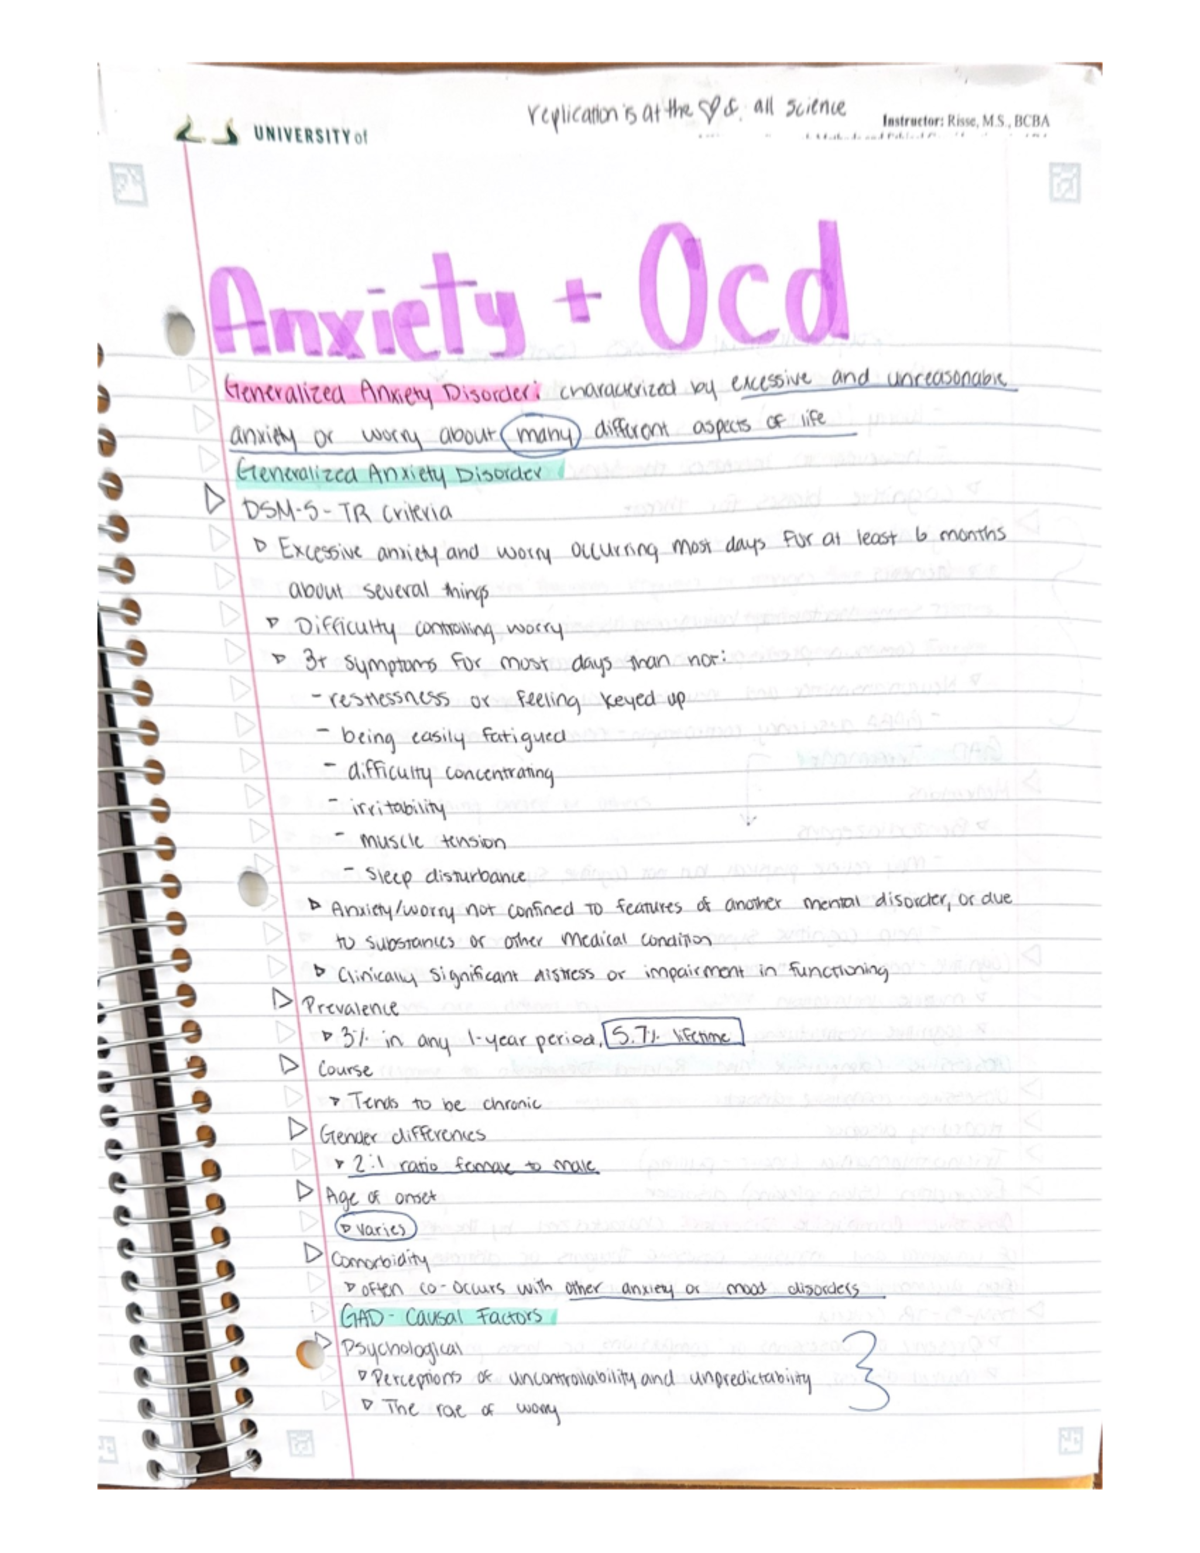 replication is at the ♡ of all science
UNIVERSITY of
Instructor: Risse, M.S., BCBA
Anxiety + Ocd
Generalized Anxiety Disorder: characterized by excessive and unreasonable
anxiety or worry about many different aspects of life
Generalized Anxiety Disorder
▷ DSM-5-TR criteria
▷ Excessive anxiety and worry occurring most days for at least 6 months
about several things
▷ Difficulty controlling worry
▷ 3+ symptoms for most days than not:
- restlessness or feeling keyed up
- being easily fatigued
- difficulty concentrating
- irritability
- muscle tension
- sleep disturbance
▷ Anxiety/worry not confined to features of another mental disorder, or due
to substances or other medical condition
▷ Clinically significant distress or impairment in functioning
▷ Prevalence
▷ 3% in any 1-year period, 5.7% lifetime
▷ Course
▷ Tends to be chronic
▷ Gender differences
▷ 2:1 ratio female to male
▷ Age of onset
▷ varies
▷ Comorbidity
▷ often co-occurs with other anxiety or mood disorders
GAD- Causal Factors
▷ Psychological
▷ Perceptions of uncontrollability and unpredictability
▷ The role of worry